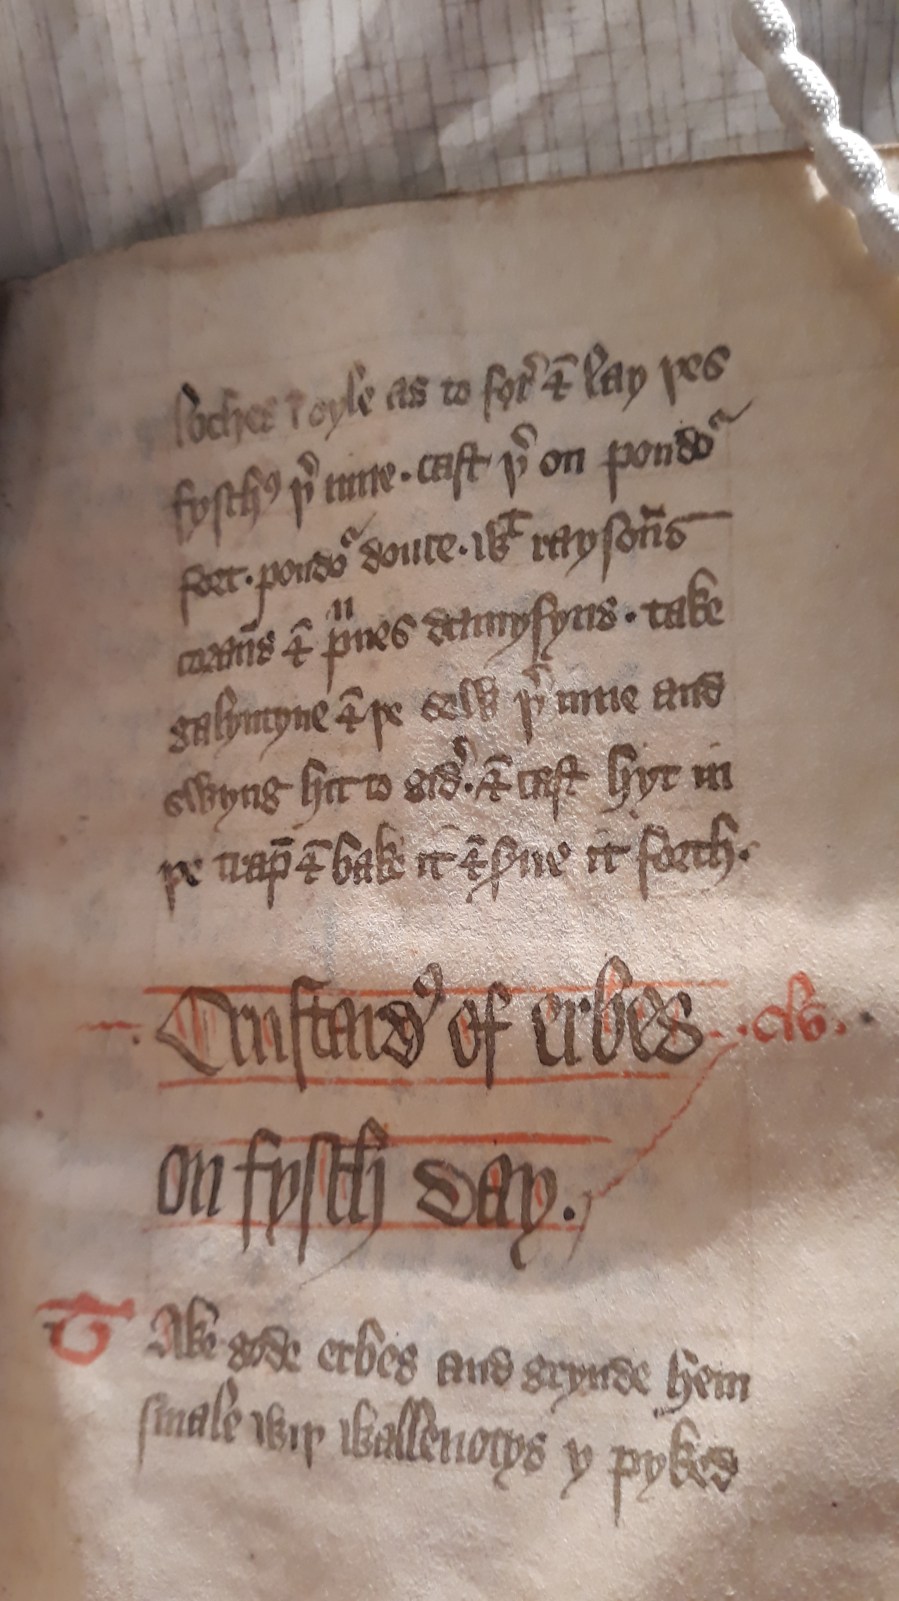 loches ī oyle as to for̉ & lay þes
fyschꝰ þ̉ inne . cast þ̉ on poudoᷣ
fort . poudoᷣ douce . wᵗ raysoūs
coraūs & pͧnes damysyns . take
galyntyne & þe sew þ̉ inne and
swyng hit to gid̉ . & cast hyt in
þe trap̄ & bake it & ẜue it forth .
Crustardꝰ of erbes . clv .
on fysch day .
T Ake gode erbes and grynde hem
smale wiþ wallenotys y pyked